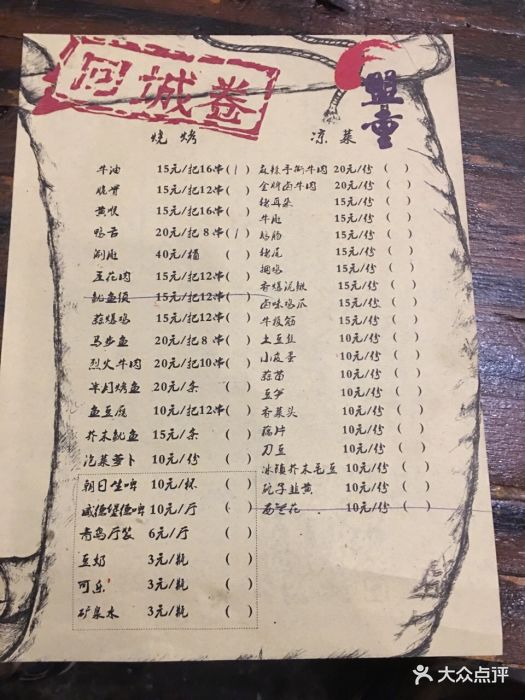 回城卷
盟重
烧烤
牛油 15元/把16串( 1 )
脆骨 15元/把12串( )
黄喉 15元/把16串( )
鸭舌 20元/把8串( 1 )
涮肚 40元/桶 ( )
豆花肉 15元/把12串( )
鱿鱼须 15元/把12串( )
蒜爆鸡 15元/把12串( )
马步鱼 20元/把8串( )
烈火牛肉 20元/把10串( )
半刈烤鱼 20元/条 ( )
鱼豆腐 10元/把12串( )
芥末鱿鱼 15元/条 ( )
泡菜萝卜 10元/份 ( )
朝日生啤 10元/杯 ( )
威德堡德啤 10元/厅 ( )
青岛厅装 6元/厅 ( )
豆奶 3元/瓶 ( )
可乐 3元/瓶 ( )
矿泉水 3元/瓶 ( )
凉菜
麻辣手撕牛肉 20元/份 ( )
金牌卤牛肉 20元/份 ( )
猪耳朵 15元/份 ( )
牛肚 15元/份 ( )
15元/份 ( )
猪尾 15元/份 ( )
15元/份 ( )
香爆泥鳅 15元/份 ( )
卤味鸡爪 15元/份 ( )
牛板筋 15元/份 ( )
土豆丝 10元/份 ( )
小皮蛋 10元/份 ( )
10元/份 ( )
豆笋 10元/份 ( )
香菜头 10元/份 ( )
藕片 10元/份 ( )
刀豆 10元/份 ( )
冰镇芥末毛豆 10元/份 ( )
韭黄 10元/份 ( )
西兰花 10元/份 ( )
大众点评